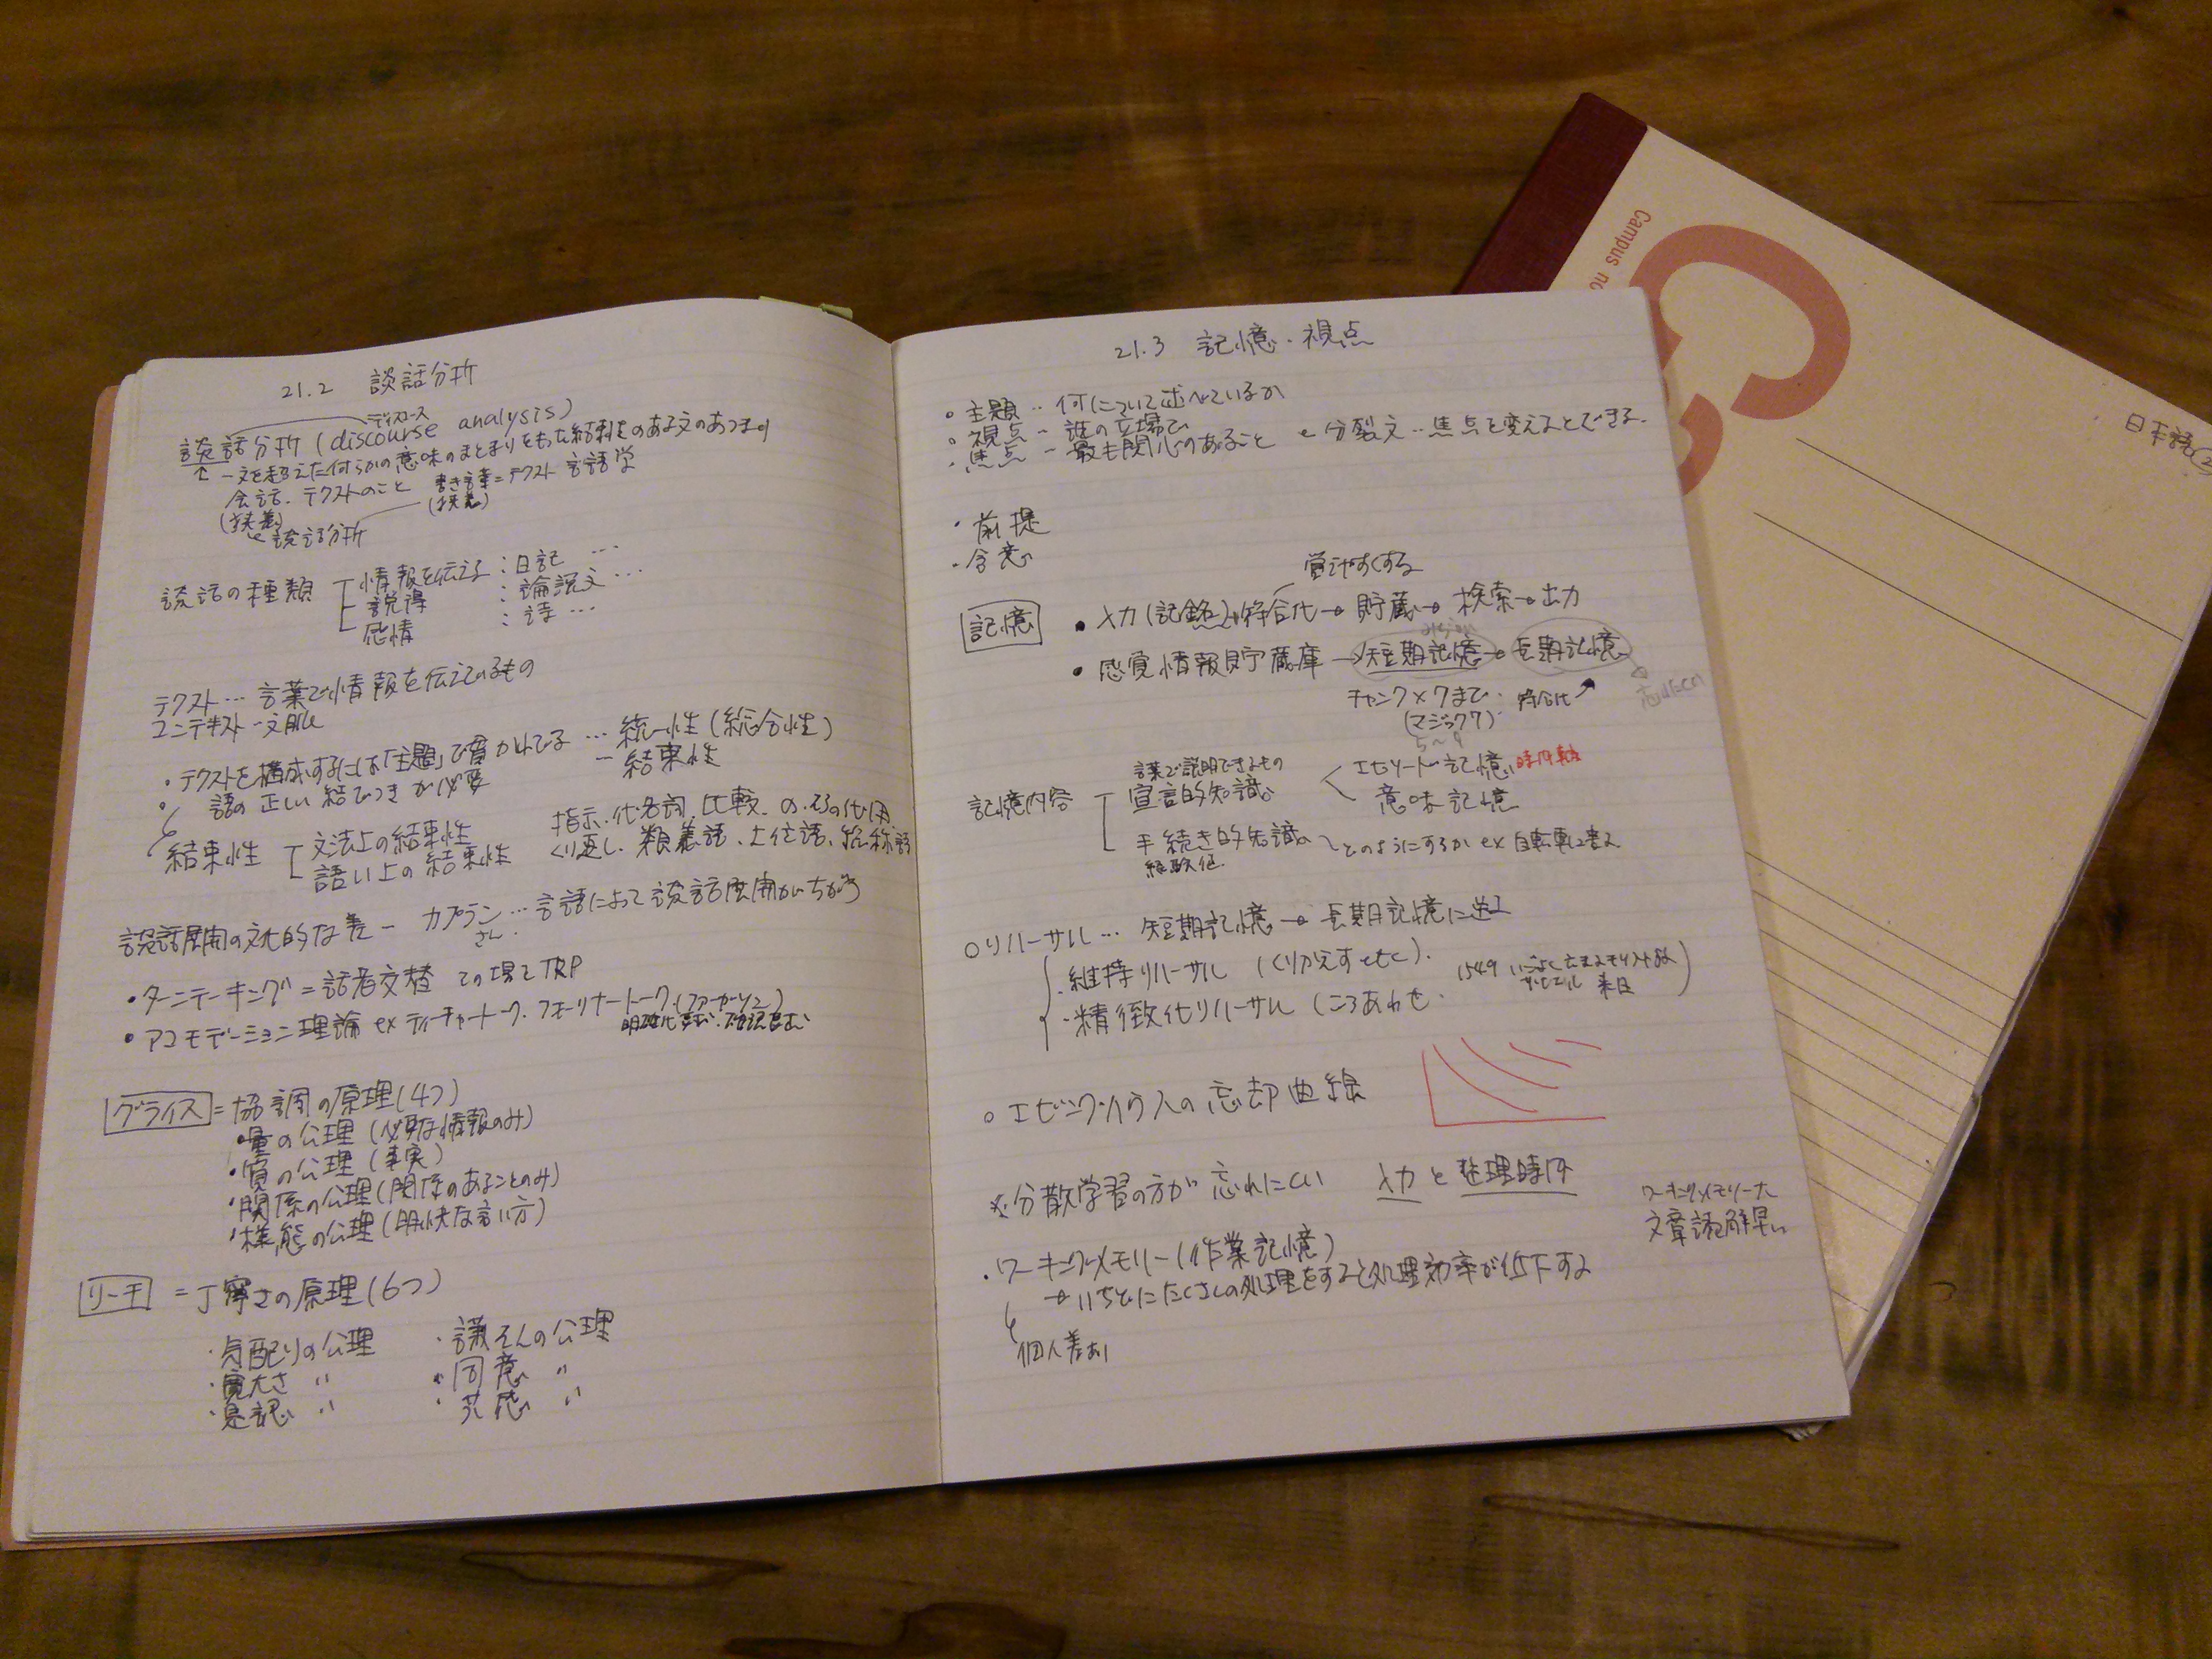 21.2 談話分析
ディスコース
談話分析 (discourse analysis)
↑ 一文を超えた何らかの意味のまとまりをもった結束性のある文のあつまり
会話、テクストのこと 書き言葉=テクスト言語学
(狭義) (狭義)
談話分析
談話の種類 情報を伝える : 日記 …
説得 : 論説文 …
感情 : 詩 …
テクスト … 言葉で情報を伝えているもの
コンテキスト - 文脈
・テクストを構成するには「主題」で書かれてる … 統一性 (総合性)
語の正しい結びつきが必要 - 結束性
結束性 文法上の結束性 指示・代名詞、比較、の、その代用
語い上の結束性 くり返し、類義語、上位語、総称語
談話展開の文化的な差 - カプラン … 言語によって談話展開がちがう
さん
・ターンテーキング = 話者交替 その場でTRP
・アコモデーション理論 ex ティーチャートーク、フォーリナートーク (ファーガソン)
明確化要求・確認要求
グライス = 協調の原理 (4つ)
・量の公理 (必要な情報のみ)
・質の公理 (事実)
・関係の公理 (関係のあることのみ)
・様態の公理 (明快な言い方)
リーチ = 丁寧さの原理 (6つ)
・気配りの公理 ・謙そんの公理
・寛大さ 〃 ・同意 〃
・是認 〃 ・共感 〃
21.3 記憶・視点
○主題 … 何について述べているか
○視点 - 誰の立場で
・焦点 - 最も関心のあること 分裂文 … 焦点を変えることできる.
・前提
・含意
覚えやすくする
記憶 ● 入力 (記銘) 符合化 → 貯蔵 → 検索 → 出力
● 感覚情報貯蔵庫 → 短期記憶 → 長期記憶
チャンク×7まで. 符合化
(マジック7)
5〜9
言葉で説明できるもの
記憶内容 宣言的知識 エピソード記憶 時間軸
意味記憶
手続き的知識 どのようにするか ex 自転車に乗る
経験値
○リハーサル … 短期記憶 → 長期記憶に送る
・維持リハーサル (くりかえすetc).
・精徹化リハーサル (ごろあわせ. 1549
ザビエル 来日
○エビングハウスの忘却曲線
※分散学習の方が忘れにくい 入力と整理時間
・ワーキングメモリー (作業記憶)
→ いちどにたくさんの処理をすると処理効率が低下する
個人差あり
ワーキングメモリー大
文章読解早い
Campus no
C
日本語②